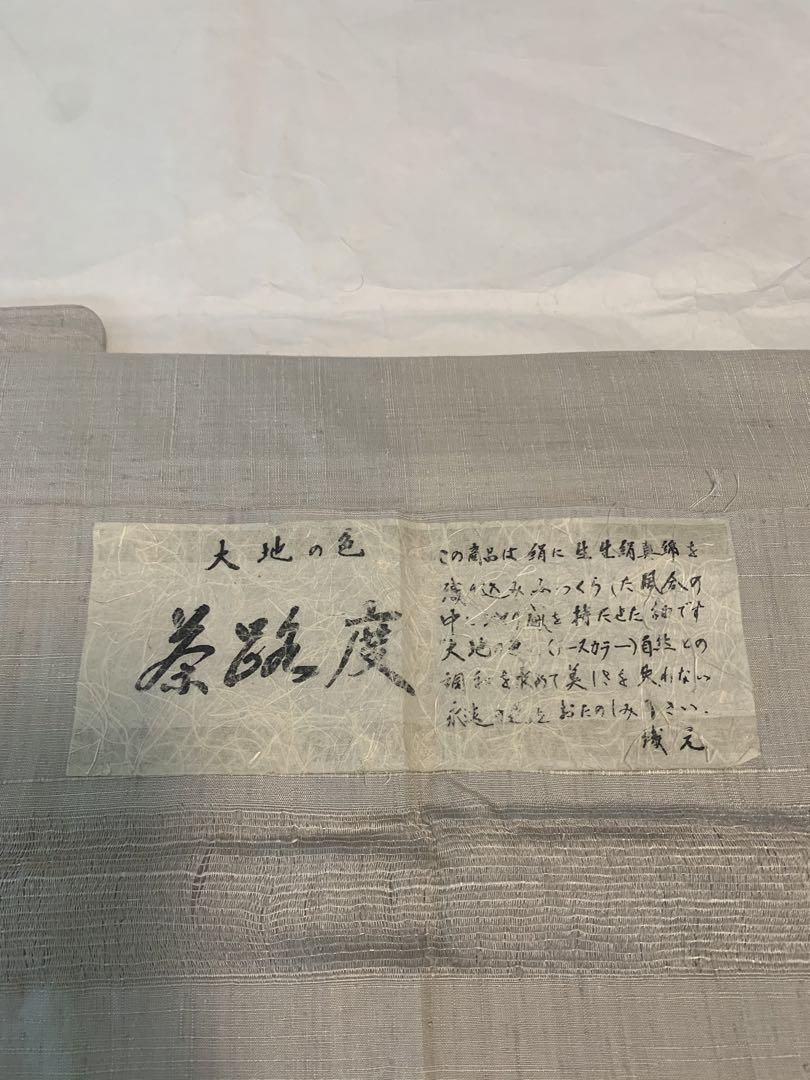 大地の色
茶路度
この商品は絹に生生絹真綿を
織り込みふっくらした風合の
中に 趣を持たせた です
大地の色(アースカラー)自然との
調和を求めて美しさを失わない
永遠の色をおたのしみ下さい.
織元